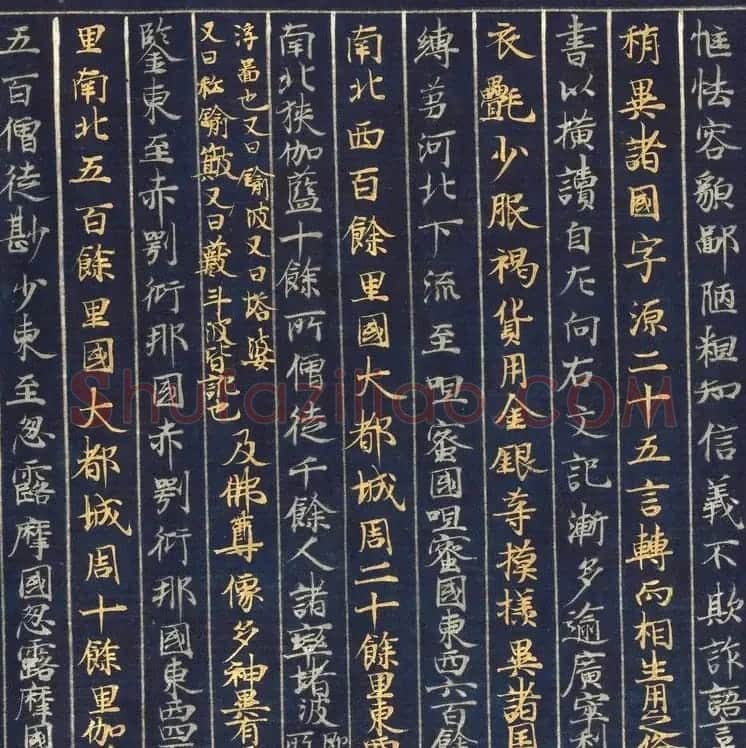 恇怯容貌鄙陋粗知信義不欺詐語言
稍異諸國字源二十五言轉而相生用之俻
書以橫讀自左向右文記漸多逾廣窣利
衣㲲少服褐貨用金銀等摸樣異諸國
縛芻河北下流至呾蜜國呾蜜國東西六百餘
南北西百餘里國大都城周二十餘里東西
南北狹伽藍十餘所僧徒千餘人諸窣堵波即所
浮啚也又曰鍮波又曰塔婆
又曰私鍮簸又曰藪斗波皆訛也
及佛尊像多神異有
鑒東至赤鄂衍那國赤鄂衍那國東西四
里南北五百餘里國大都城周十餘里伽
五百僧徒尠少東至忽露摩國忽露摩國
Shufaziliao.COM